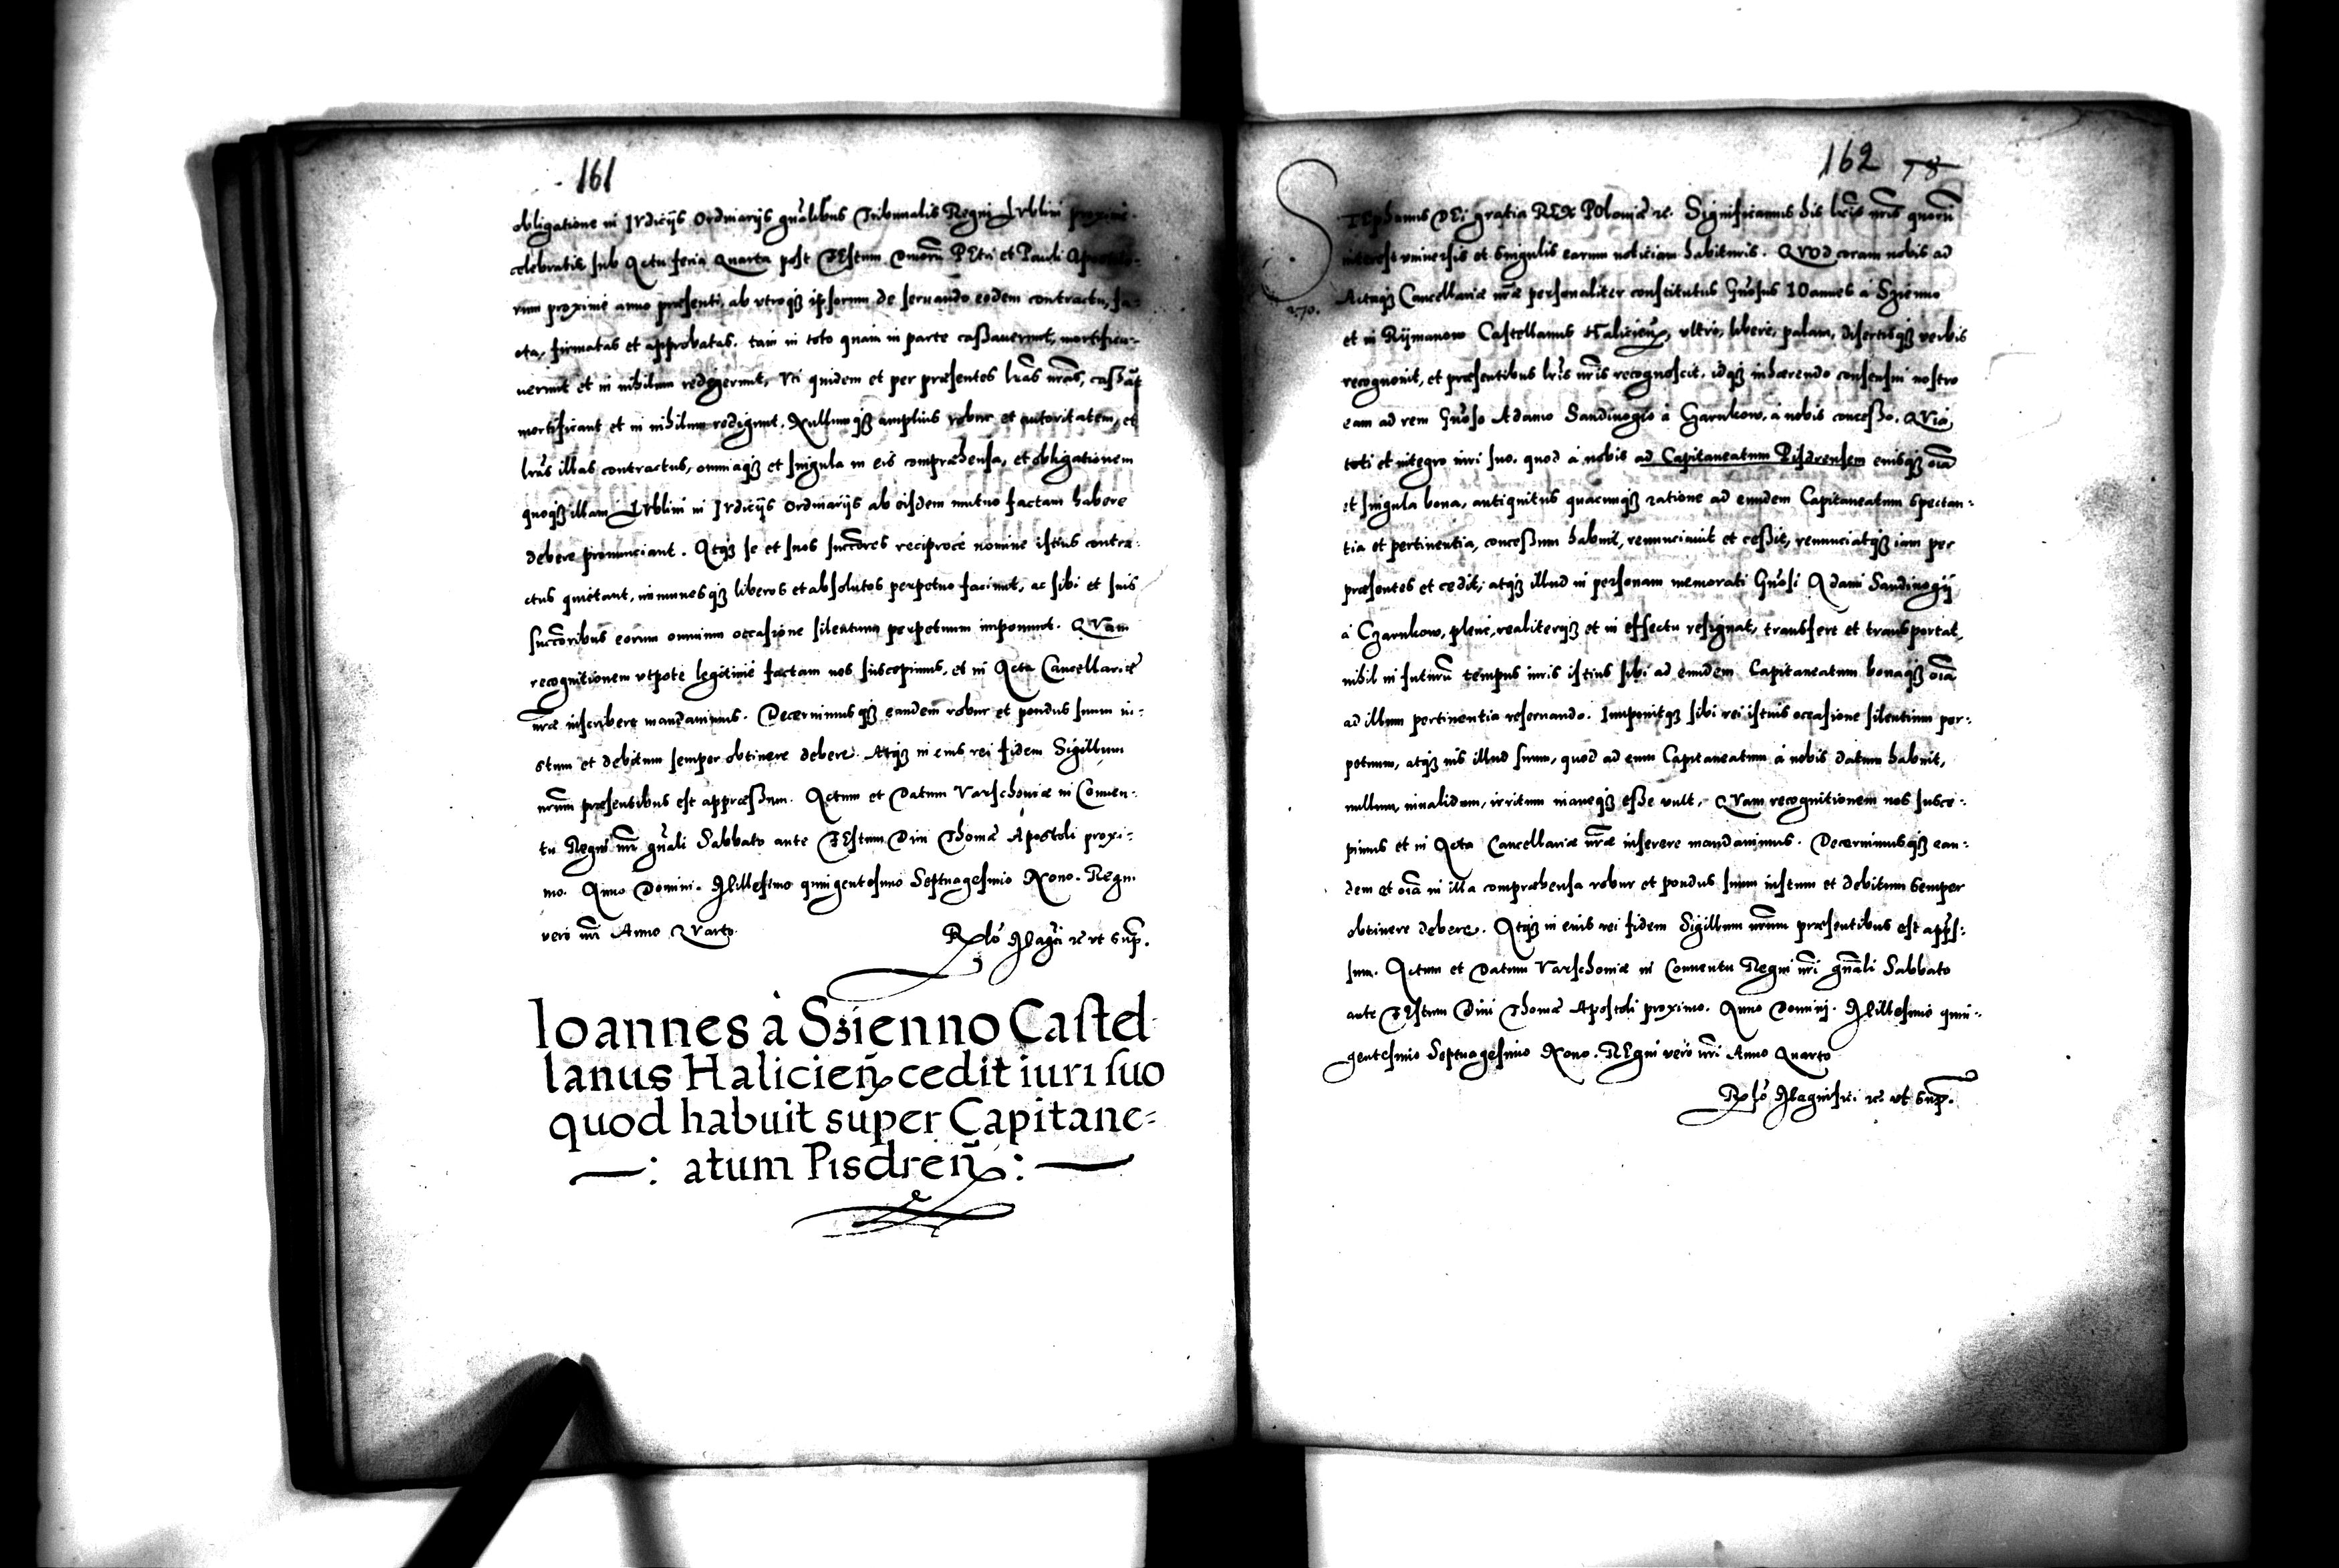 161
obligatione in Irdicijs Ordinarijs gnãlibus Tribunalis Regni Lrblini proxime
celebratis sub Actu feria Quarta post Festum Diuorũ PEtri et Pauli Aposto-
rum proxime anno præsenti, ab vtroqȝ ipsorum de seruando eodem contractu, fa-
cta, firmatas et approbatas, tam in toto quam in parte caßauerunt, mortifica-
uerunt et in nihilum redigerunt, Vti quidem et per præsentes lrãs nrãs, caßãt
mortificant et in nihilum redigunt. Nullumqȝ amplius robur et autoritatem, et
lrãs illas contractus, omniaqȝ et singula in eis compræhensa, et obligationem
quoqȝ illam Lrblini in Irdicijs Ordinarijs ab eisdem mutuo factam habere
debere pronunciant. Atqȝ se et suos succõres reciproce nomine istius contra-
ctus quietant, immunesqȝ liberos et absolutos perpetuo faciunt, ac sibi et suis
succõribus eorum omnium occasione silentium perpetuum imponunt. QVam
recognitionem vtpote legitime factam nos suscepimus, et in Acta Cancellariæ
nrãe inscribere mandauimus. Decernimusqȝ eandem robur et pondus suum iu-
stum et debitum semper obtinere debere. Atqȝ in eius rei fidem Sigillum
nrũm præsentibus est appræßum. Actum et Datum Varschouiæ in Conuen-
tu Regni nrĩ gnãli Sabbato ante FEstum Diui Thomæ Apostoli proxi-
mo. Anno Domini. Millesimo quingentesimo Septuagesimo Nono. Regni
vero nrĩ Anno QVarto.
Relõ Magci zc vt Sup.
Ioannes à Sȝienno Castel-
lanus Halicieñ cedit iuri suo
quod habuit super Capitane-
—: atum Pisdreñ :—
162 78
STEphanus DEi gratia REX POloniæ zc. Significamus his lrĩs nrĩs quorũ
interest vniuersis et Singulis earum noticiam habituris. QVOd coram nobis ad
Actaqȝ Cancellariæ nrãe personaliter constitutus Gnõsus IOannes à Sȝienno
et in Rijmanow Castellanus Halicieñ, vltro, libere, palam, disertisqȝ verbis
recognouit, et præsentibus lrĩs nrĩs recognoscit, idqȝ inhærendo consensui nostro
eam ad rem Gnõso Adamo Sandiuogio à Czarnkow, à nobis conceßo. QVia
toti et integro iuri suo, quod à nobis ad Capitaneatum Pisdrensem eiusqȝ oĩa
et singula bona, antiquitus quacunqȝ ratione ad eundem Capitaneatum spectan-
tia et pertinentia, conceßum habuit, renunciauit et ceßit, renunciatqȝ iam per
præsentes et cedit, atqȝ illud in personam memorati Gnõsi Adami Sandiuogij
à Czarnkow, plene, realiterqȝ et in effectu resignat, transfert et transportat,
nihil in futurũ tempus iuris istius sibi ad eundem Capitaneatum bonaqȝ oĩa
ad illum pertinentia reseruando. Imponitqȝ sibi rei istius occasione silentium per-
petuum, atqȝ ius illud suum, quod ad eum Capitaneatum à nobis datum habuit,
nullum, inualidum, irritum inaneqȝ eße vult. QVam recognitionem nos susce-
pimus et in Acta Cancellariæ nrãe inserere mandauimus. Decernimusqȝ ean-
dem et oĩa in illa compræhensa robur et pondus suum iustum et debitum semper
obtinere debere. Atqȝ in eius rei fidem Sigillum nrũm præsentibus est apprs-
sum. Actum et Datum Varschouiæ in Conuentu Regni nrĩ gnãli Sabbato
ante FEstum Diui Thomæ Apostoli proximo. Anno Domini. Millesimo quin-
gentesimo Septuagesimo Nono. REgni vero nrĩ Anno Quarto
Relõ Magnifici. zc vt Sup.